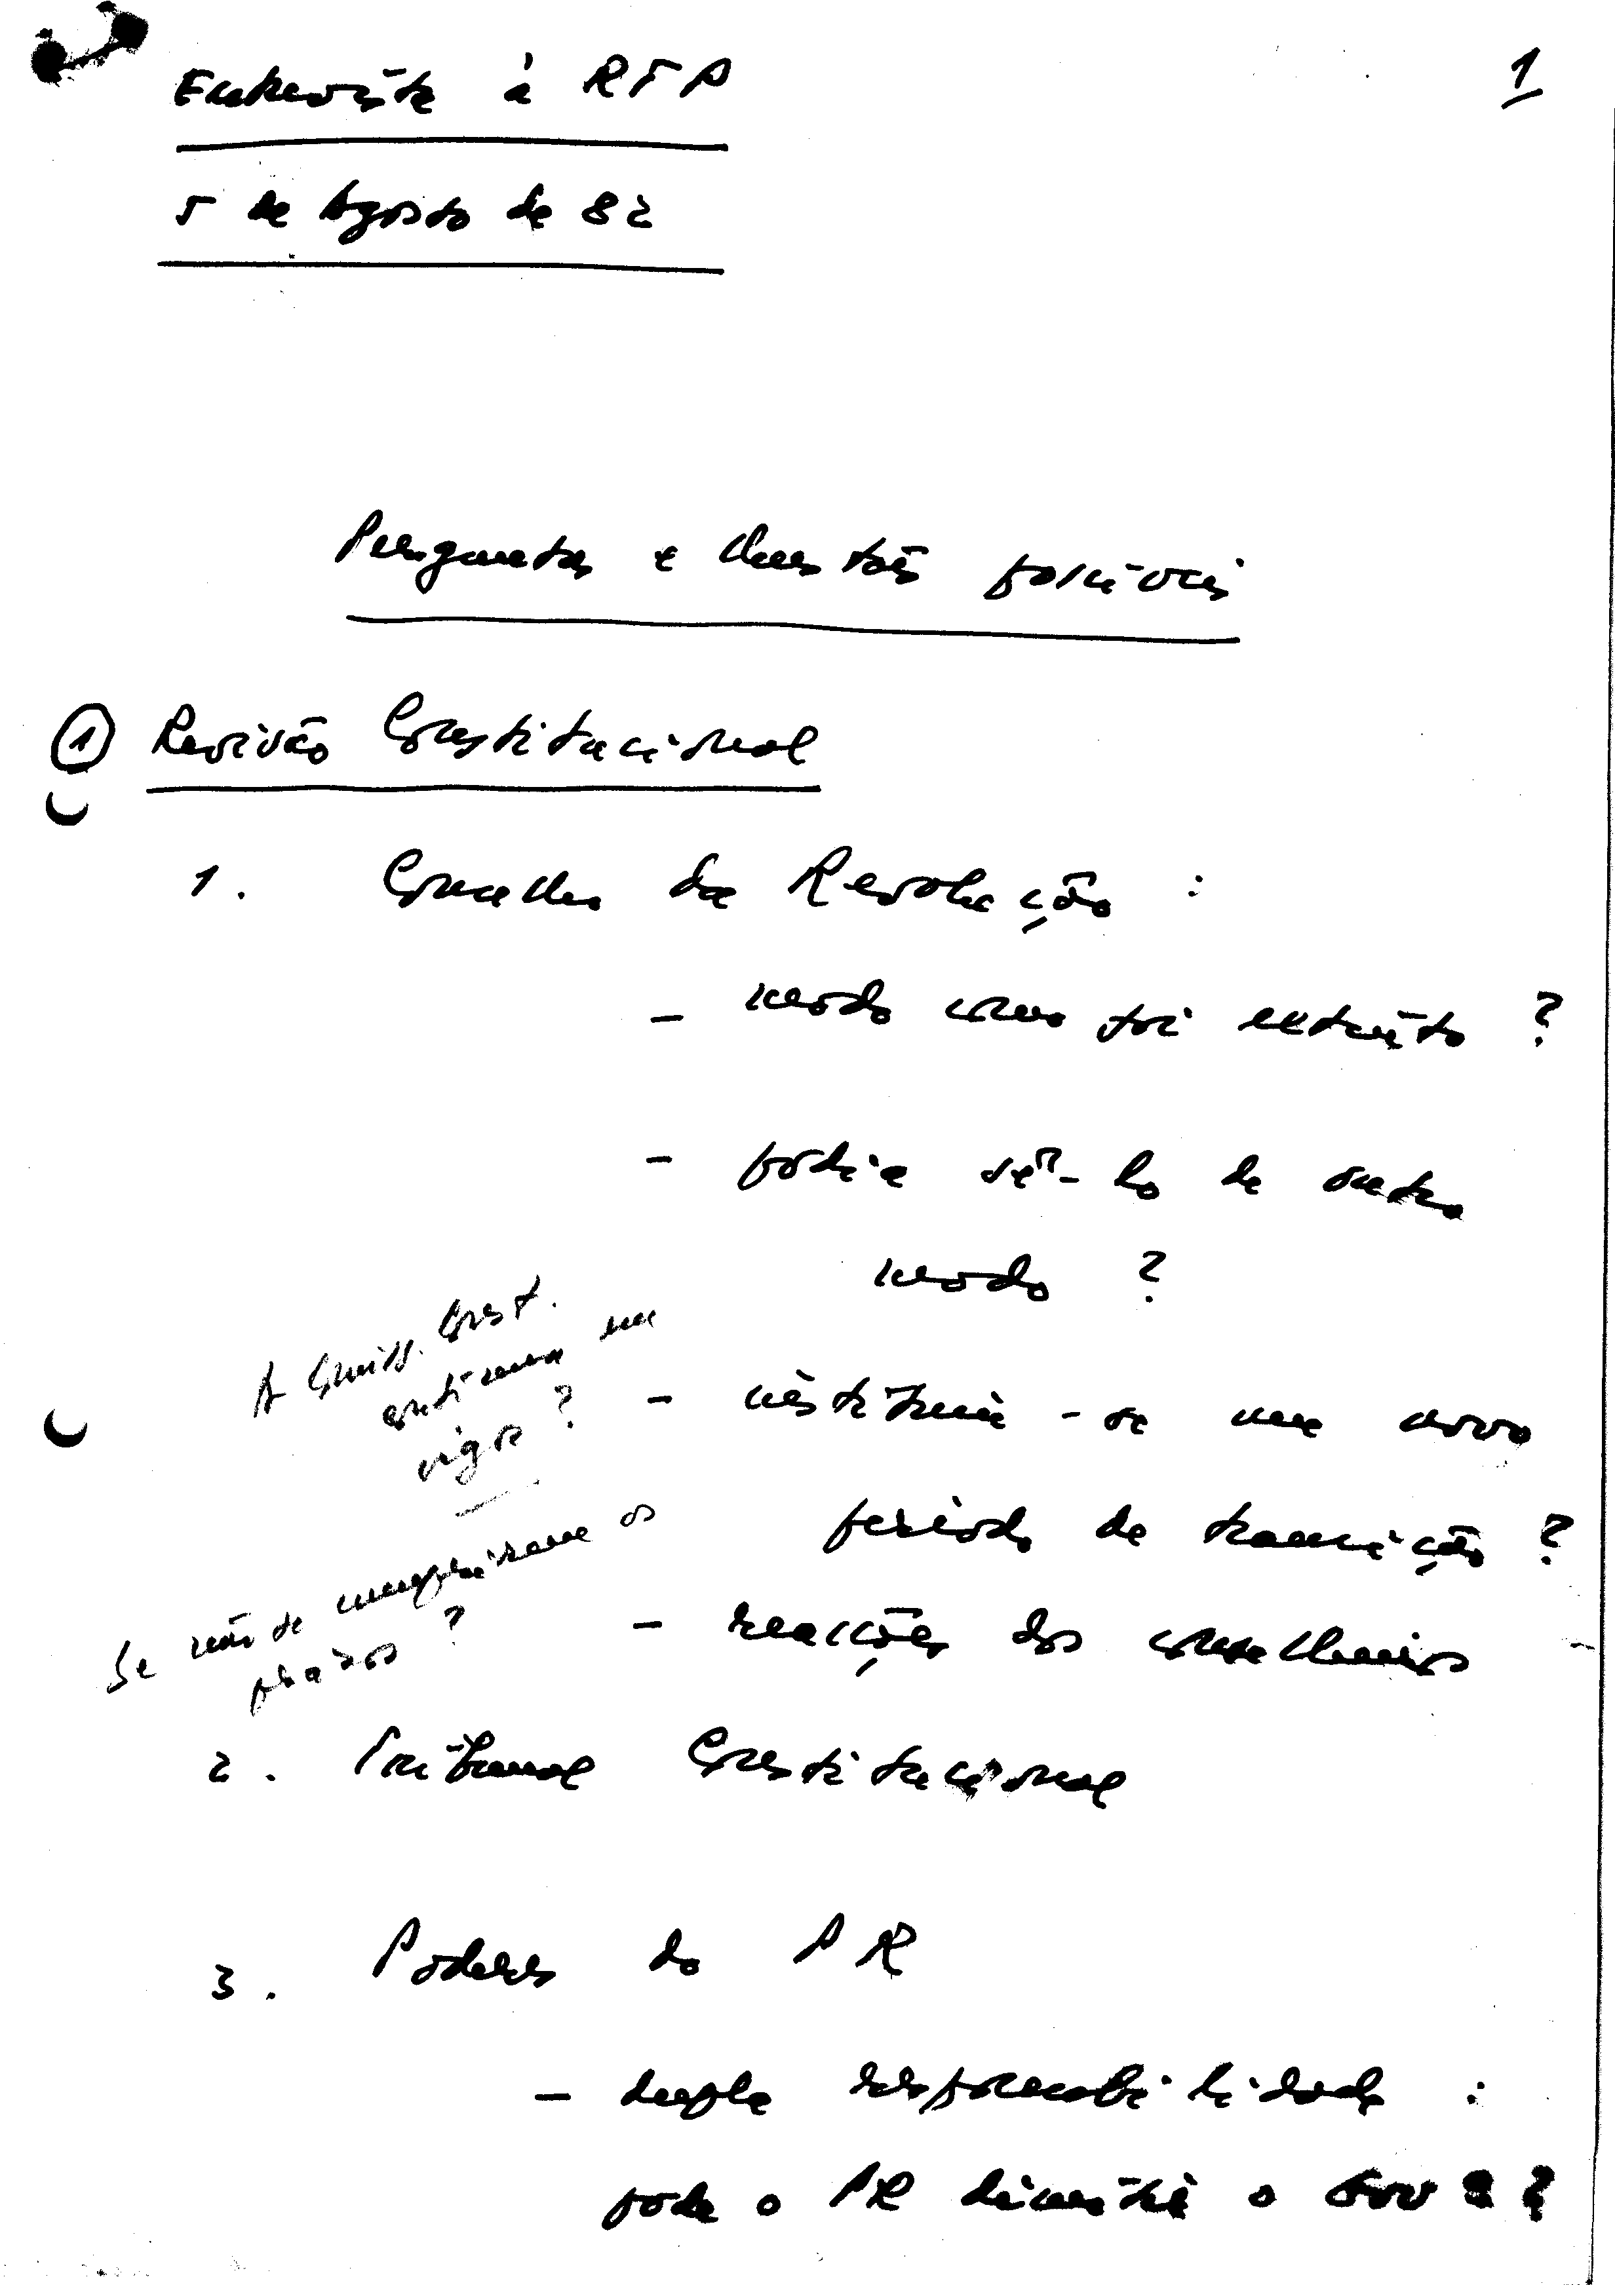 1
Entrevista à RTP
5 de Agosto de 82
Perguntas e Questões possíveis
① Revisão Constitucional
1. Conselho da Revolução :
- modo como foi extinto ?
- podia sê-lo de outro
modo ?
A Comiss. Const.
continua em
vigor ?
- institui-se um novo
período de transição ?
Se não se cumprirem os
prazos ?
- reacções dos conselheiros
2. Tribunal Constitucional
3. Poderes do PR
- dupla responsabilidade :
pode o PR demitir o Gov ?